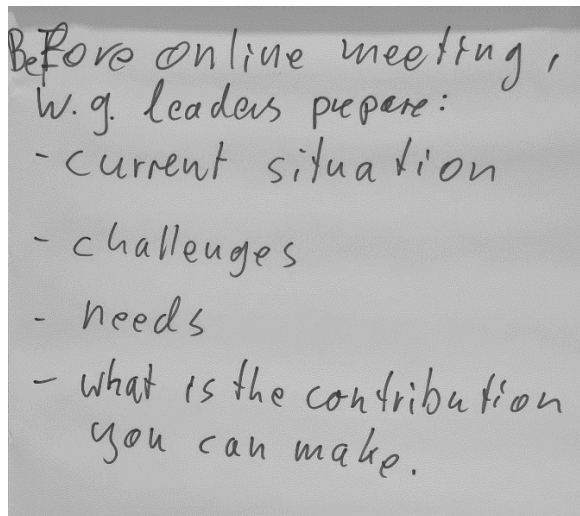 Before online meeting,
w.g. leaders prepare:
- current situation
- challenges
- needs
- what is the contribution
you can make.